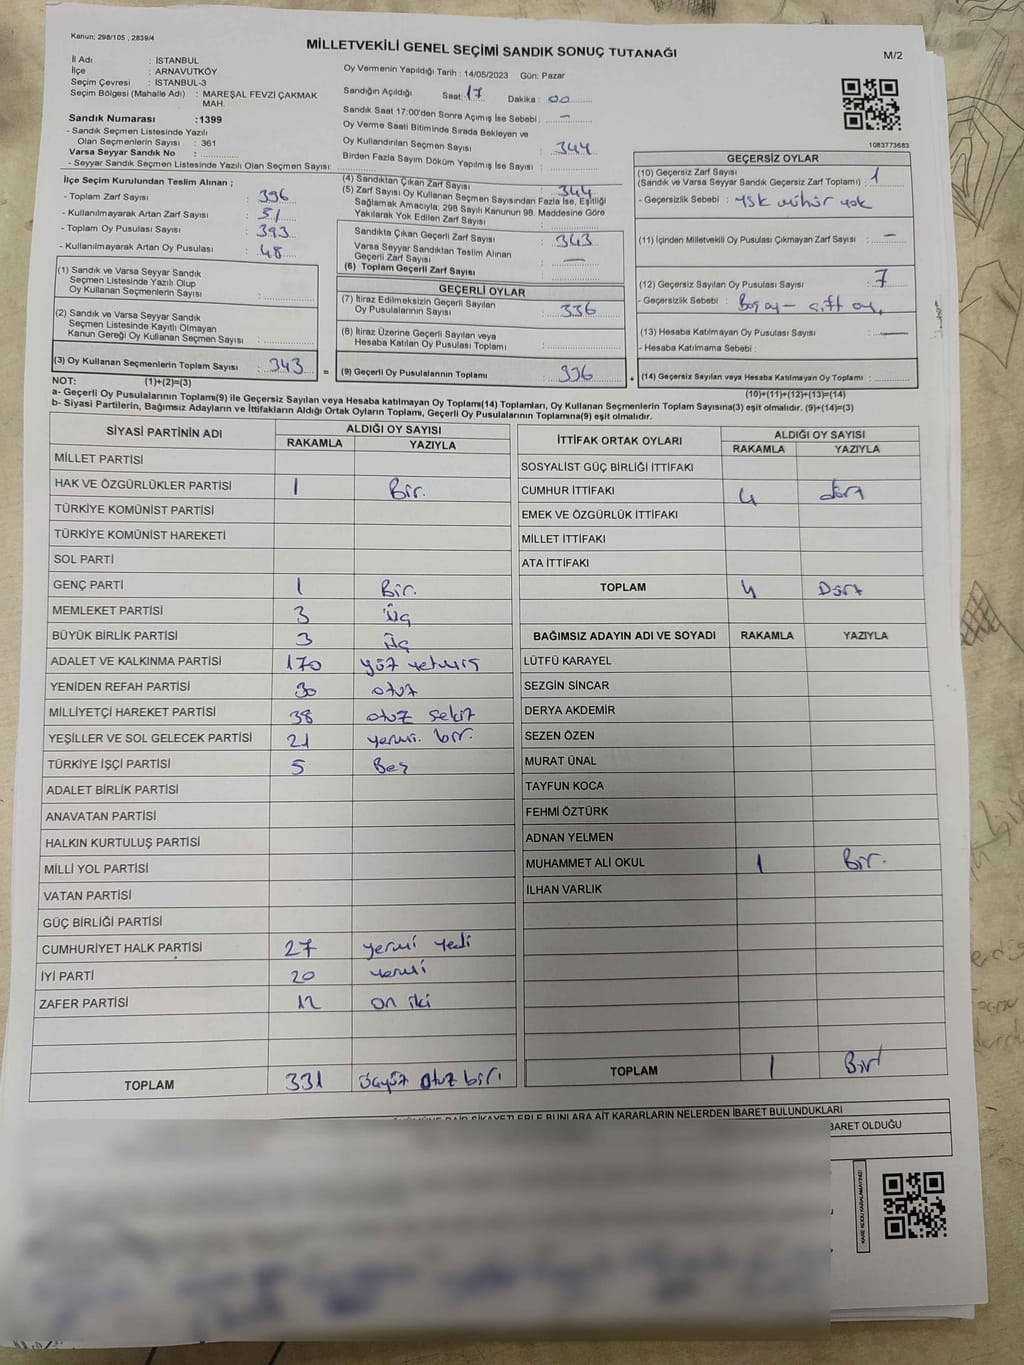 Kanun: 298/105 , 2839/4
MİLLETVEKİLİ GENEL SEÇİMİ SANDIK SONUÇ TUTANAĞI
M/2
İl Adı : İSTANBUL
İlçe : ARNAVUTKÖY
Seçim Çevresi : İSTANBUL-3
Seçim Bölgesi (Mahalle Adı) : MAREŞAL FEVZİ ÇAKMAK
MAH.
Sandık Numarası :1399
- Sandık Seçmen Listesinde Yazılı
Olan Seçmenlerin Sayısı : 361
Varsa Seyyar Sandık No :
- Seyyar Sandık Seçmen Listesinde Yazılı Olan Seçmen Sayısı:
Oy Vermenin Yapıldığı Tarih : 14/05/2023 Gün: Pazar
Sandığın Açıldığı Saat: 17 Dakika : 00
Sandık Saat 17:00'den Sonra Açımış İse Sebebi : –
Oy Verme Saati Bitiminde Sırada Bekleyen ve
Oy Kullandırılan Seçmen Sayısı : 344
Birden Fazla Sayım Döküm Yapılmış İse Sayısı :
1083773683
İlçe Seçim Kurulundan Teslim Alınan ;
- Toplam Zarf Sayısı : 396
- Kullanılmayarak Artan Zarf Sayısı : 51
- Toplam Oy Pusulası Sayısı : 393
- Kullanılmayarak Artan Oy Pusulası : 48
(1) Sandık ve Varsa Seyyar Sandık
Seçmen Listesinde Yazılı Olup
Oy Kullanan Seçmenlerin Sayısı :
(2) Sandık ve Varsa Seyyar Sandık
Seçmen Listesinde Kayıtlı Olmayan
Kanun Gereği Oy Kullanan Seçmen Sayısı :
(3) Oy Kullanan Seçmenlerin Toplam Sayısı : 343
(4) Sandıktan Çıkan Zarf Sayısı : 344
(5) Zarf Sayısı Oy Kullanan Seçmen Sayısından Fazla İse, Eşitliği
Sağlamak Amacıyla, 298 Sayılı Kanunun 98. Maddesine Göre
Yakılarak Yok Edilen Zarf Sayısı :
Sandıkta Çıkan Geçerli Zarf Sayısı : 343
Varsa Seyyar Sandıktan Teslim Alınan
Geçerli Zarf Sayısı : –
(6) Toplam Geçerli Zarf Sayısı :
GEÇERLİ OYLAR
(7) İtiraz Edilmeksizin Geçerli Sayılan
Oy Pusulalarının Sayısı : 336
(8) İtiraz Üzerine Geçerli Sayılan veya
Hesaba Katılan Oy Pusulası Toplamı :
= (9) Geçerli Oy Pusulalarının Toplamı : 336
GEÇERSİZ OYLAR
(10) Geçersiz Zarf Sayısı
(Sandık ve Varsa Seyyar Sandık Geçersiz Zarf Toplamı) : 1
- Geçersizlik Sebebi : YSK mühür yok
(11) İçinden Milletvekili Oy Pusulası Çıkmayan Zarf Sayısı : –
(12) Geçersiz Sayılan Oy Pusulası Sayısı : 7
- Geçersizlik Sebebi : Boş oy – çift oy
(13) Hesaba Katılmayan Oy Pusulası Sayısı : –
- Hesaba Katılmama Sebebi :
+ (14) Geçersiz Sayılan veya Hesaba Katılmayan Oy Toplamı :
NOT: (1)+(2)=(3)
(10)+(11)+(12)+(13)=(14)
a- Geçerli Oy Pusulalarının Toplamı(9) ile Geçersiz Sayılan veya Hesaba katılmayan Oy Toplamı(14) Toplamları, Oy Kullanan Seçmenlerin Toplam Sayısına(3) eşit olmalıdır. (9)+(14)=(3)
b- Siyasi Partilerin, Bağımsız Adayların ve İttifakların Aldığı Ortak Oyların Toplamı, Geçerli Oy Pusulalarının Toplamına(9) eşit olmalıdır.
SİYASİ PARTİNİN ADI ALDIĞI OY SAYISI
RAKAMLA YAZIYLA
MİLLET PARTİSİ
HAK VE ÖZGÜRLÜKLER PARTİSİ 1 Bir.
TÜRKİYE KOMÜNİST PARTİSİ
TÜRKİYE KOMÜNİST HAREKETİ
SOL PARTİ
GENÇ PARTİ 1 Bir.
MEMLEKET PARTİSİ 3 Üç
BÜYÜK BİRLİK PARTİSİ 3 Üç
ADALET VE KALKINMA PARTİSİ 170 yüz yetmiş
YENİDEN REFAH PARTİSİ 30 otuz
MİLLİYETÇİ HAREKET PARTİSİ 38 otuz sekiz
YEŞİLLER VE SOL GELECEK PARTİSİ 21 yirmi bir.
TÜRKİYE İŞÇİ PARTİSİ 5 Beş
ADALET BİRLİK PARTİSİ
ANAVATAN PARTİSİ
HALKIN KURTULUŞ PARTİSİ
MİLLİ YOL PARTİSİ
VATAN PARTİSİ
GÜÇ BİRLİĞİ PARTİSİ
CUMHURİYET HALK PARTİSİ 27 yirmi yedi
İYİ PARTİ 20 yirmi
ZAFER PARTİSİ 12 on iki
TOPLAM 331 üçyüz otuz bir.
İTTİFAK ORTAK OYLARI ALDIĞI OY SAYISI
RAKAMLA YAZIYLA
SOSYALİST GÜÇ BİRLİĞİ İTTİFAKI
CUMHUR İTTİFAKI 4 dört
EMEK VE ÖZGÜRLÜK İTTİFAKI
MİLLET İTTİFAKI
ATA İTTİFAKI
TOPLAM 4 Dört
BAĞIMSIZ ADAYIN ADI VE SOYADI RAKAMLA YAZIYLA
LÜTFÜ KARAYEL
SEZGİN SİNCAR
DERYA AKDEMİR
SEZEN ÖZEN
MURAT ÜNAL
TAYFUN KOCA
FEHMİ ÖZTÜRK
ADNAN YELMEN
MUHAMMET ALİ OKUL 1 Bir.
İLHAN VARLIK
TOPLAM 1 Bir
DAİR ŞİKAYETLERLE BUNLARA AİT KARARLARIN NELERDEN İBARET BULUNDUKLARI
BARET OLDUĞU
KARE KODU KARALAMAYINIZ!